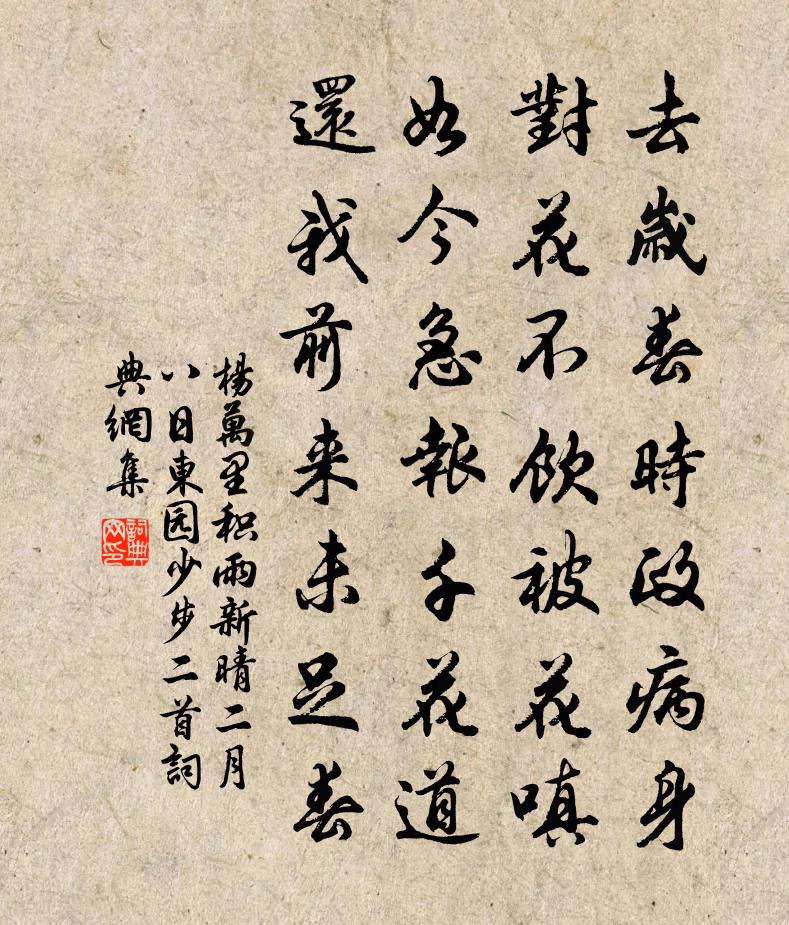 去歲春時政病身
對花不飲被花嗔
如今急報千花道
還我前来未足春
楊萬里积雨新晴二月
八日東园少步二首詞
典網集
詞典
网印